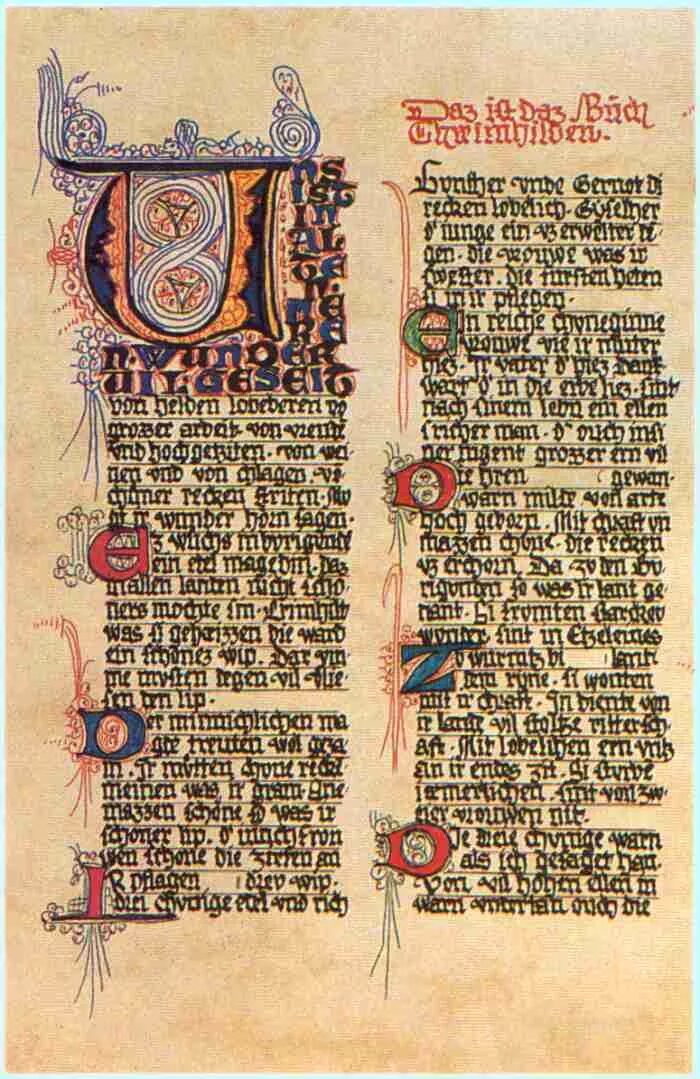 UNS
IST
IN
AL
TE
N
RE
N·WUNDER
UIL·GESEIT
von helden lobeberen vō
grozzer arbeit· von vreude
vnd hochgeziten· von wei
nen vnd von chlagen· vō
chūner recken striten· Mv
gt ir wunder horn sagen·
Ez wuchs in burigunde
ein etel magedin. daz
in allen lanten nicht scho
ners mochte sin· Crimhilt
was si geheizzen die ward
ein schonez wip. Dar vm
me mvsten degen vil vlie
sen den lip·
Der minnichlichen ma
gde treuten wol geza
m· Ir mvtten chone recke
meinen was ir gram· Ane
mazzen schone so was ir
schoner lip· d' iunchfron
wen schone die zirten an
IR pflagen drev wip·
drei chvnige etel vnd rich
Daz ist daz Bůch
Chreimhilden·
Gvnther vnde Gernot di
recken lobelich· Gyselher
d' iunge ein vz erwelter te
gen· die vrouwe was ir
swester· die fursten heten
si in ir pflegen·
Ein reiche chvneginne
vrouwe vte ir muter
hiez· ir vater d' hiez Dank
wart d' in die erbe liez· sint
nach sinem lebn ein ellen
sricher man· d' ouch in si
ner iugent grozzer ern vil
Die hren gewan·
warn milte von arte
hoch geborn· Mit chraft vn
mazzen chone· die recken
vz erchorn· Da zv den Bv
rigonden so was ir lant ge
nant· Si fromten starckev
wunter· sint in Etzeleines
Zo wurmtz bi lant·
dem ryne· si wonten
mit ir chraft· In diente von
ir lande vil stoltze rittersch
aft· Mit lobelichen ern vntz
an ir endes zit· Si sturbe
iæmerlichen· sint von zw
eier vrouwen nit·
Die dreie chvnige warn
als ich gesaget han·
Von vil hohen ellen in
warn vntertan ouch die